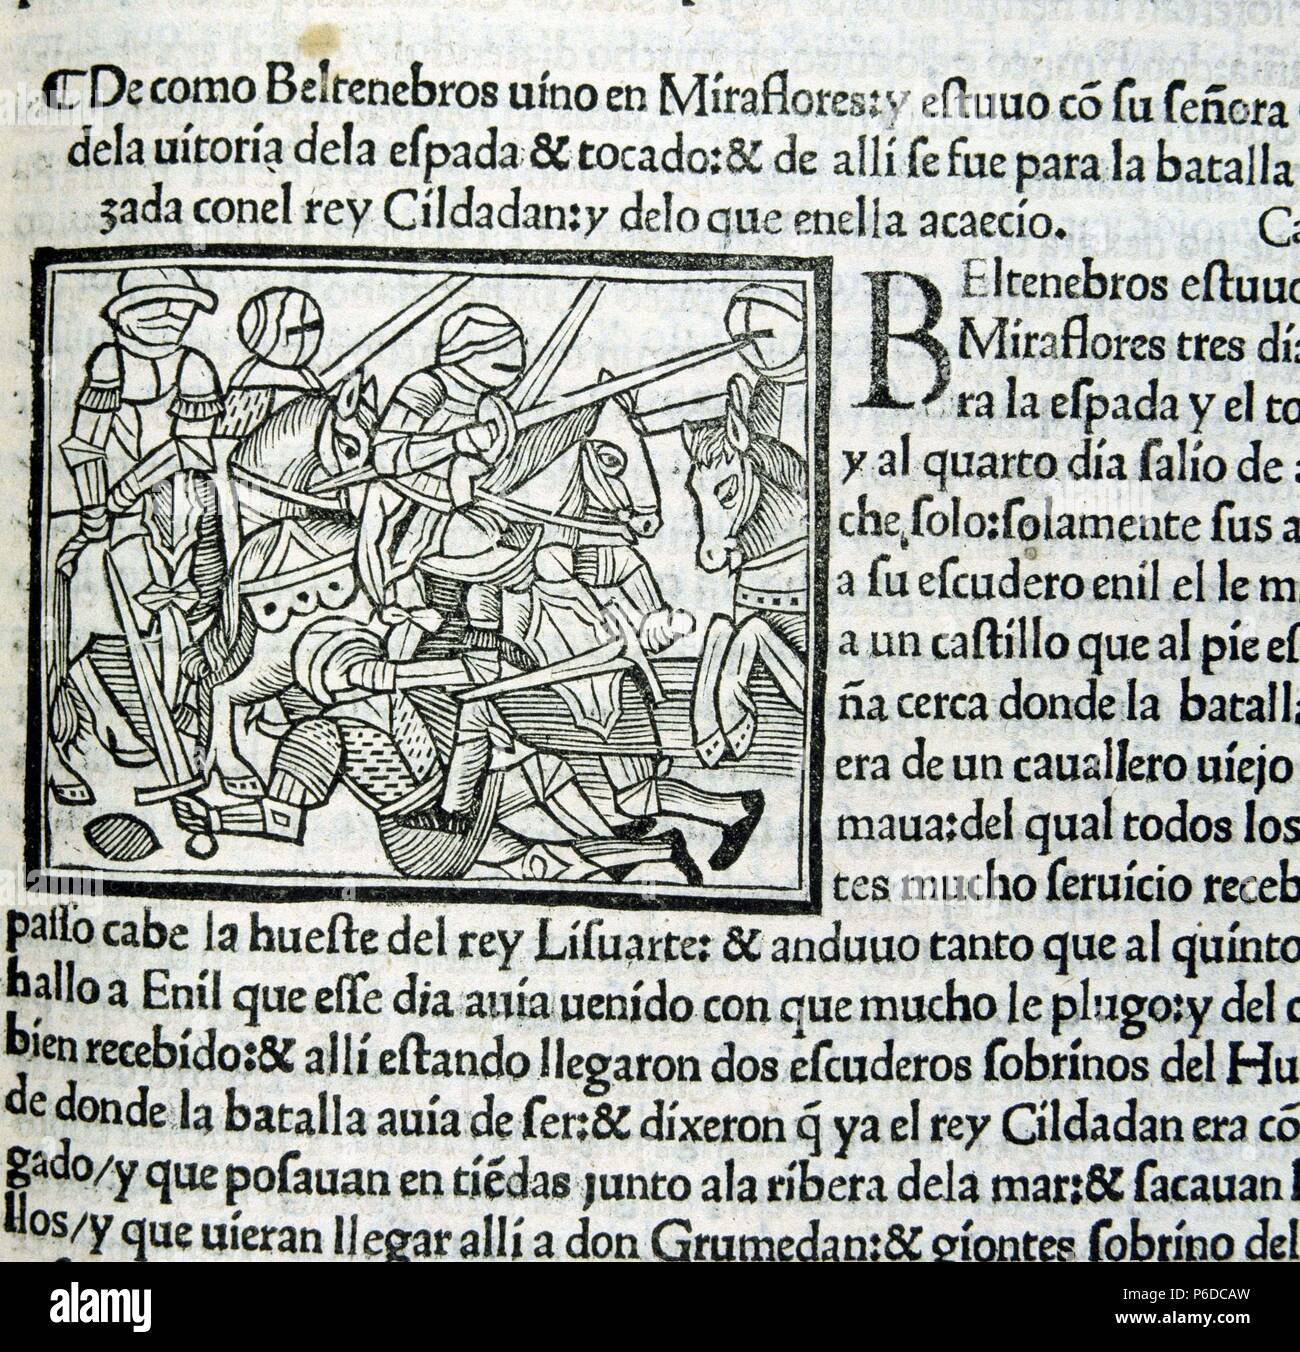 ¶ De como Beltenebros uino en Miraflores: y estuuo cõ su señora
dela uitoria dela espada & tocado: & de alli se fue para la batalla
zada conel rey Cildadan: y delo que enella acaecio. Ca
BEltenebros estuuo
Miraflores tres dia
ra la espada y el to
y al quarto dia salio de a
che solo: solamente sus a
a su escudero enil el le m
a un castillo que al pie es
ña cerca donde la batalla
era de un cauallero uiejo
maua: del qual todos los
tes mucho seruicio receb
passo cabe la hueste del rey Lisuarte: & anduuo tanto que al quinto
hallo a Enil que esse dia auia uenido con que mucho le plugo: y del c
bien recebido: & alli estando llegaron dos escuderos sobrinos del Hu
de donde la batalla auia de ser: & dixeron q̃ ya el rey Cildadan era cõ
gado/y que posauan en tiẽdas junto ala ribera dela mar: & sacauan
llos/y que uieran llegar alli a don Grumedan: & giontes sobrino del
alamy
alamy stock photo
P6DCAW
www.alamy.com